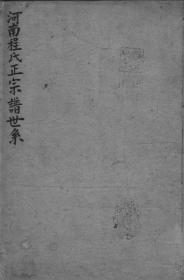 河南程氏正宗譜世系